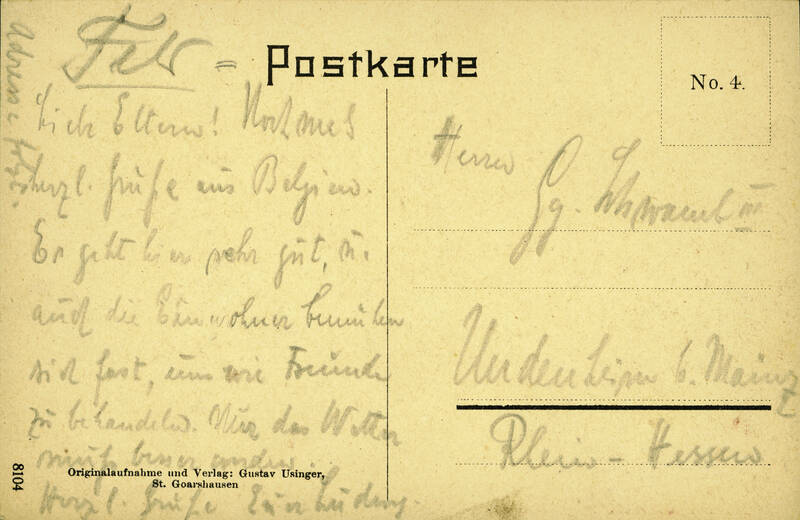 Feld = Postkarte
No. 4.
Adresse folgt
Liebe Eltern! Nochmals
herzl. Grüße aus Belgien.
Es geht hier sehr gut, u.
auch die Einwohner bemühen
sich fast, uns wie Freunde
zu behandeln. Nur das Wetter
muß besser werden.
Herzl. Grüße Euer Ludwig.
Herrn
Gg. Schwamb III
Undenheim b. Mainz
Rhein-Hessen
8104
Originalaufnahme und Verlag: Gustav Usinger,
St. Goarshausen